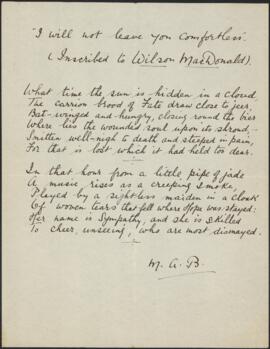 "I will not leave you comfortless"
(Inscribed to Wilson MacDonald).
What time the sun is hidden in a cloud,
The carrion brood of Fate draw close to jeer,
Bat-winged and hungry, closing round the bier
Where lies the wounded soul upon its shroud,
Smitten well-nigh to death and steeped in pain,
For that is lost which it had held too dear.
In that hour from a little pipe of jade
A music rises as a creeping smoke,
Played by a sightless maiden in a cloak
Of woven tears that fell where Hope was stayed:
Her name is Sympathy, and she is skilled
To cheer, unseeing, who are most dismayed.
M. A. B.